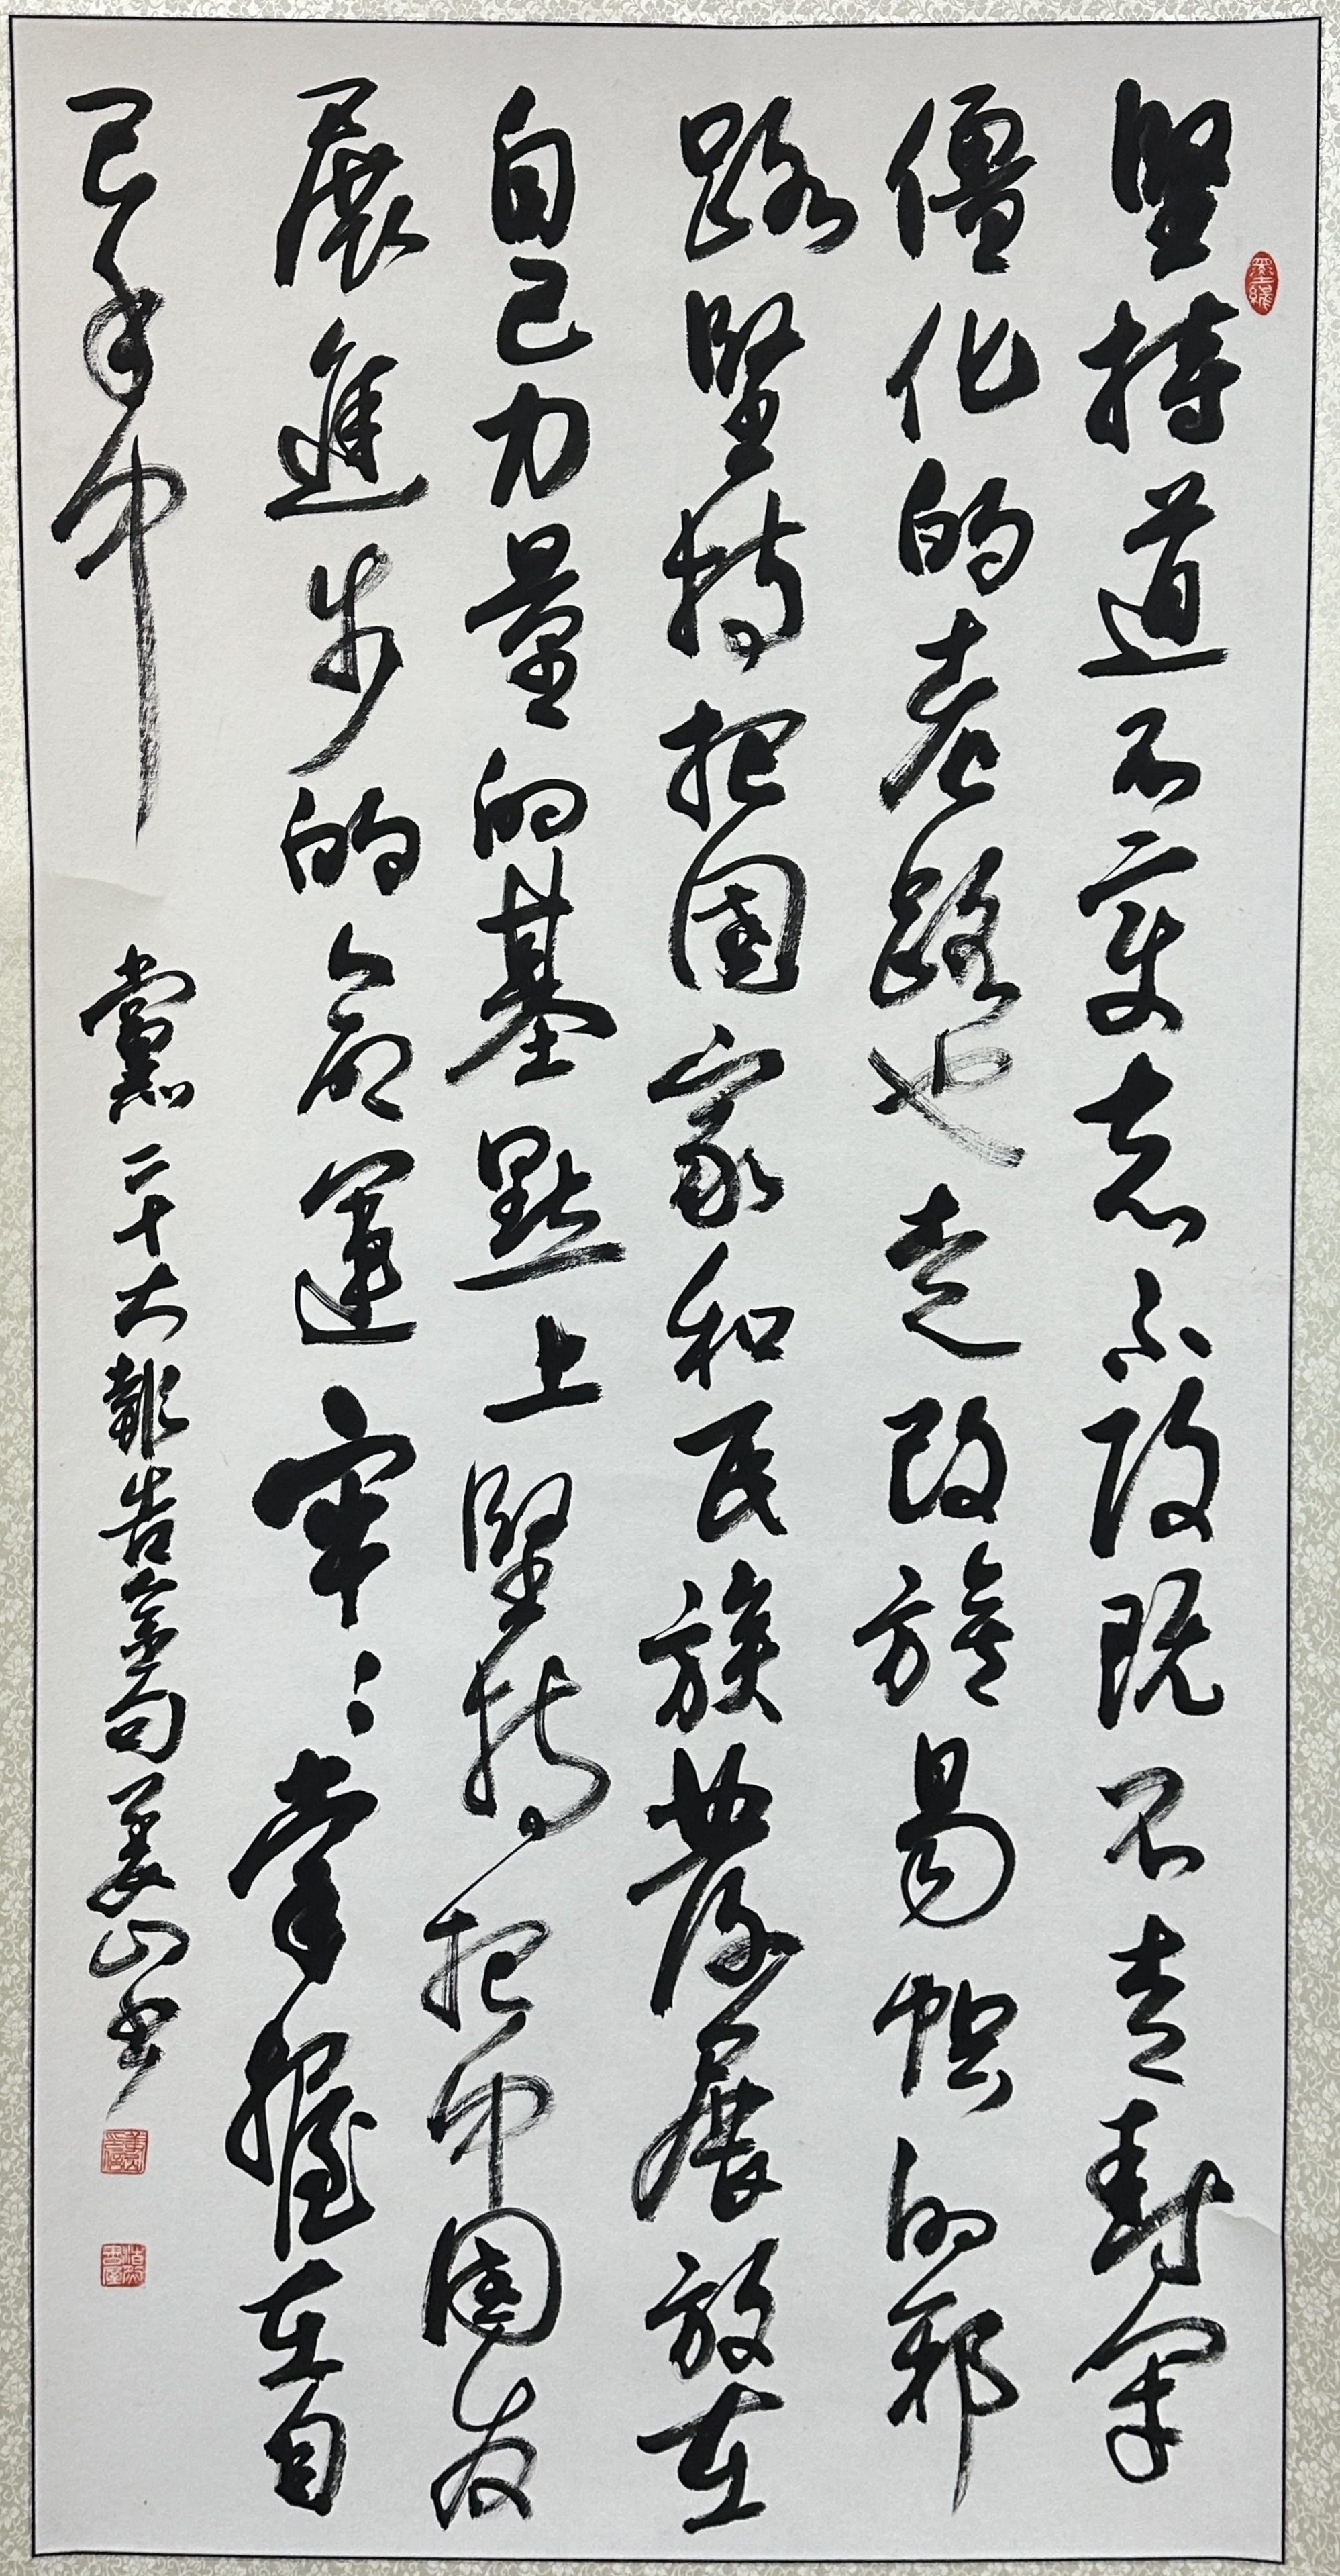 墨緣
堅持道不變志不改既不走封閉
僵化的老路也走改旗易幟的邪
路堅持把國家和民族發展放在
自己力量的基點上堅持把中國發
展進步的命運牢々掌握在自
己手中 黨二十大報告金句姜山書